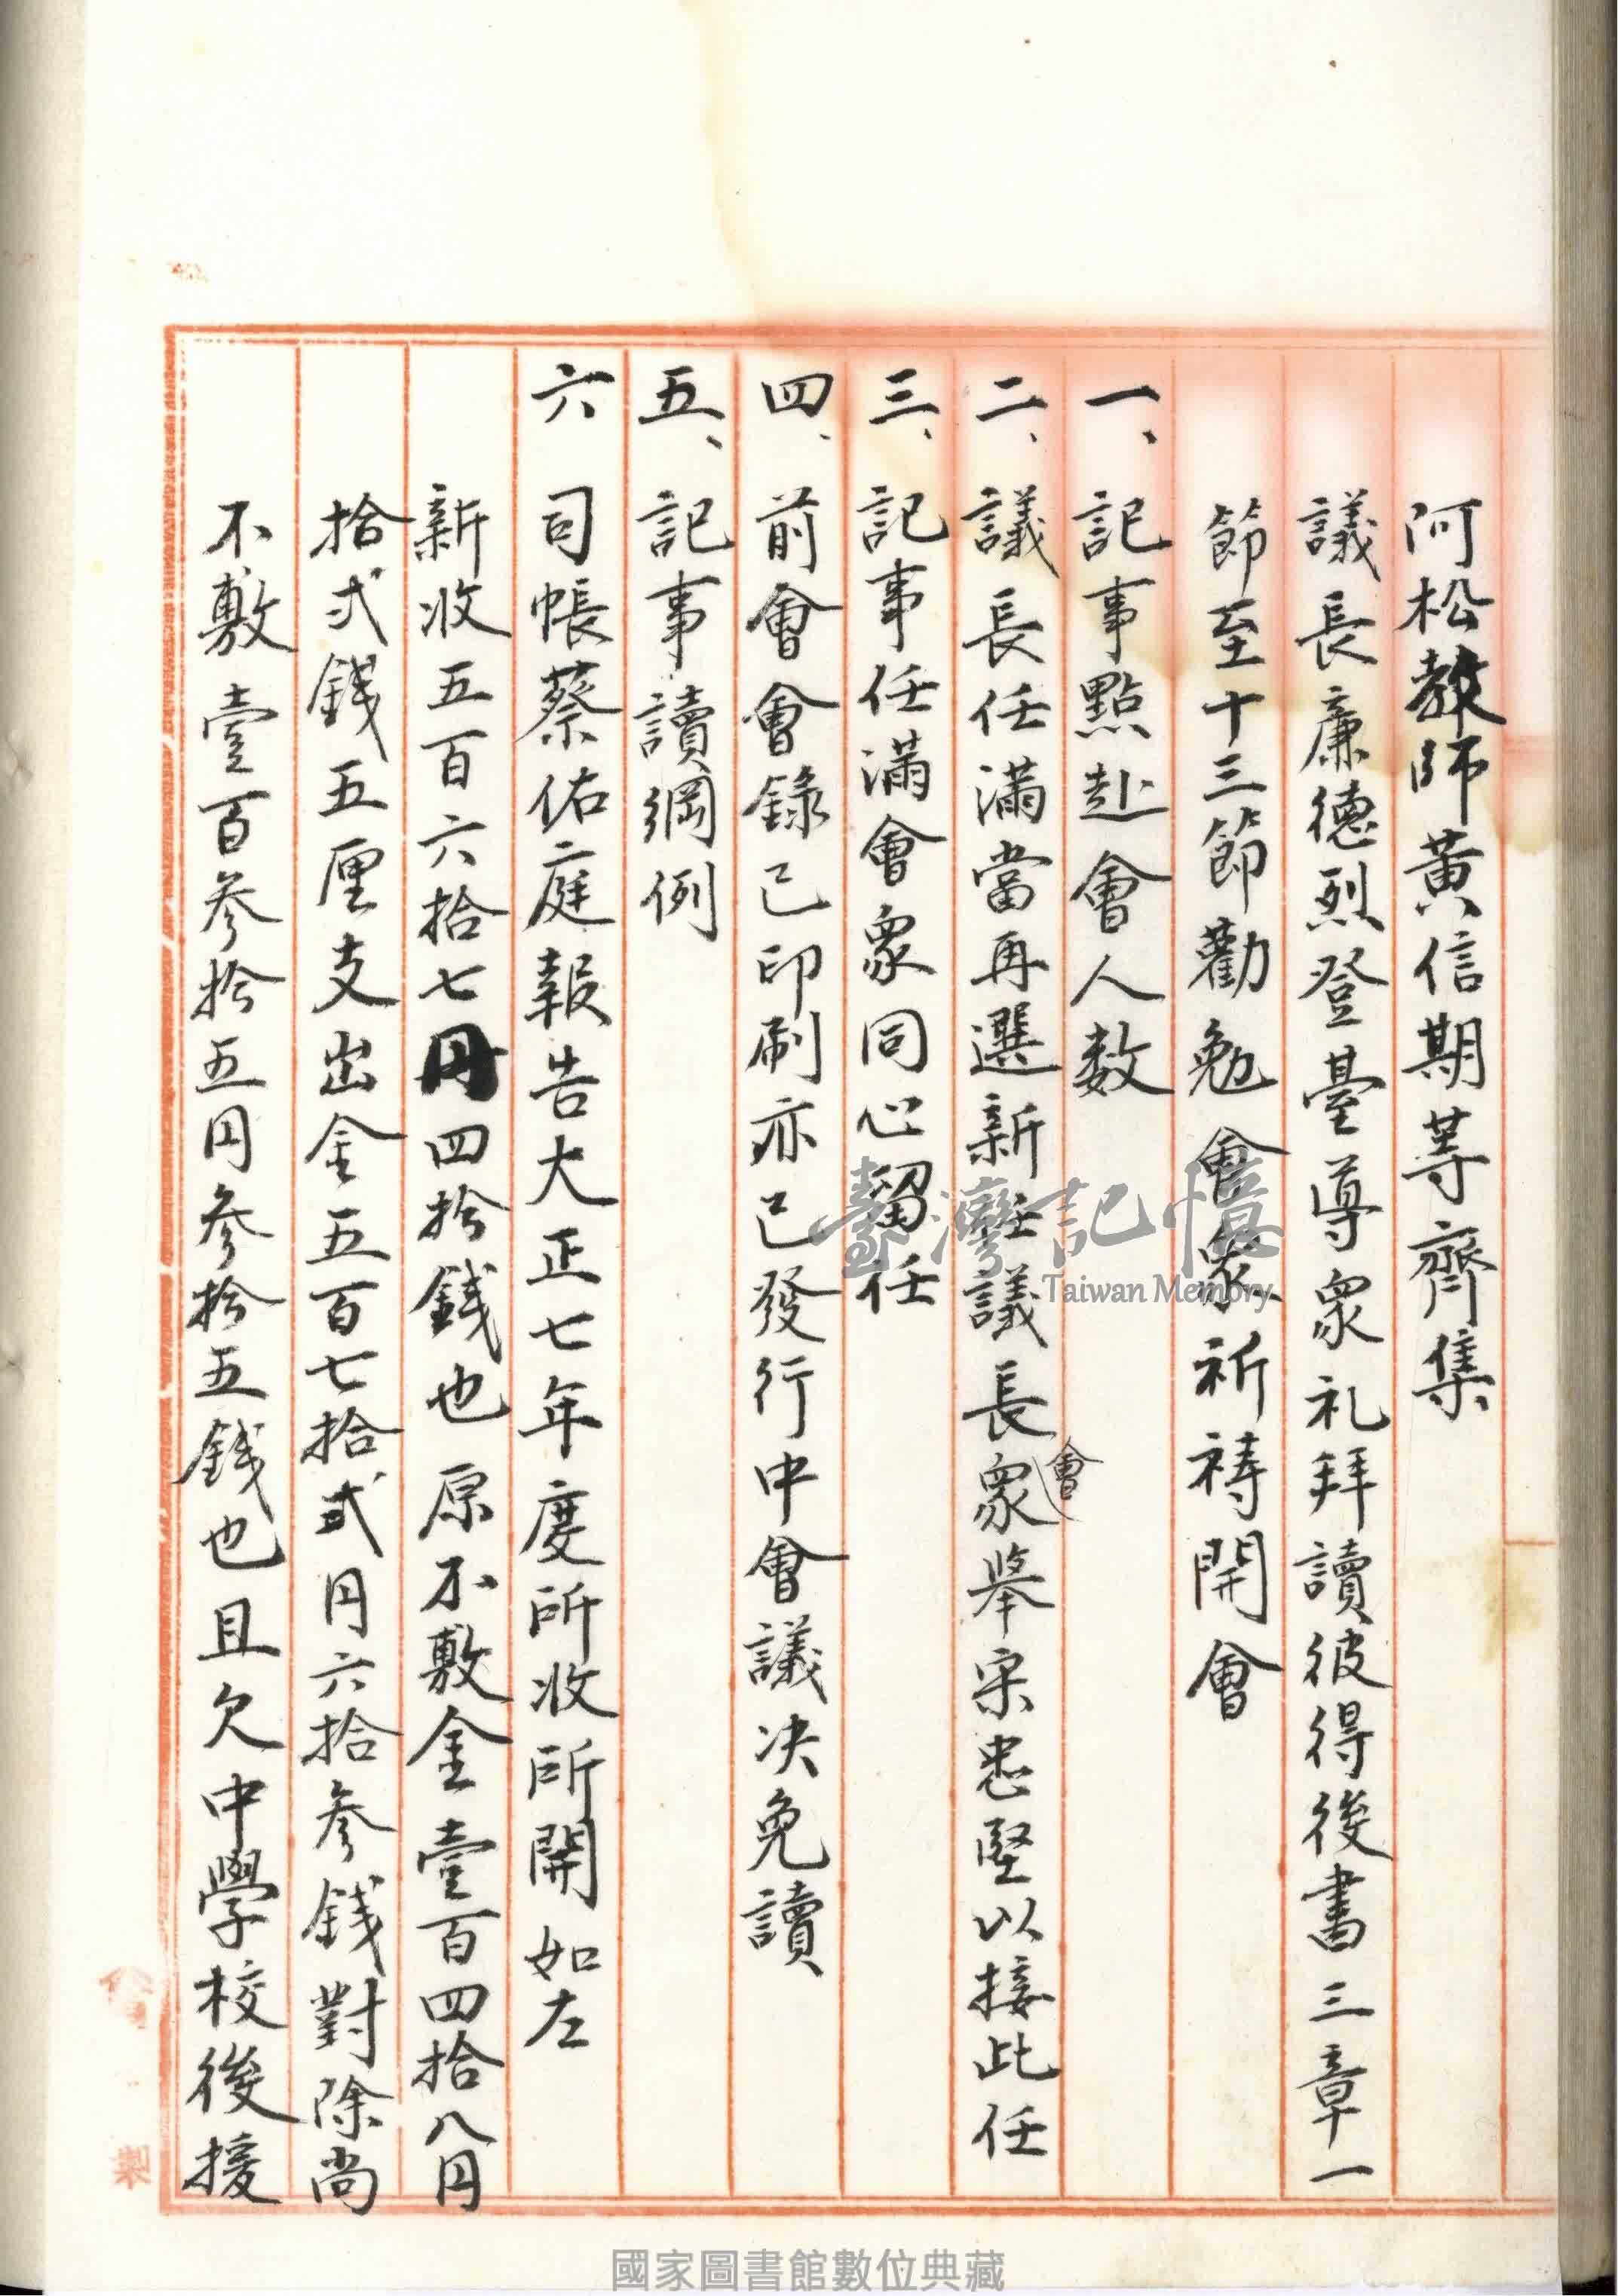 阿松教師黃信期等齊集
議長廉德烈登臺導衆礼拜讀彼得後書三章一
節至十三節勸勉會衆祈禱開會
一、記事點赴會人数
二、議長任滿當再選新任議長會衆举宋忠堅以接此任
三、記事任滿會衆同心留任
四、前會會錄已印刷亦已發行中會議决免讀
五、記事讀綱例
六 司帳蔡佑庭報告大正七年度所收所開如左
新收五百六拾七円四拾錢也原不敷金壹百四拾八円
拾弍錢五厘支出金五百七拾弍円六拾參錢對除尚
不敷壹百參拾五円參拾五錢也且欠中學校後援
臺灣記憶
Taiwan Memory
製
國家圖書館數位典藏